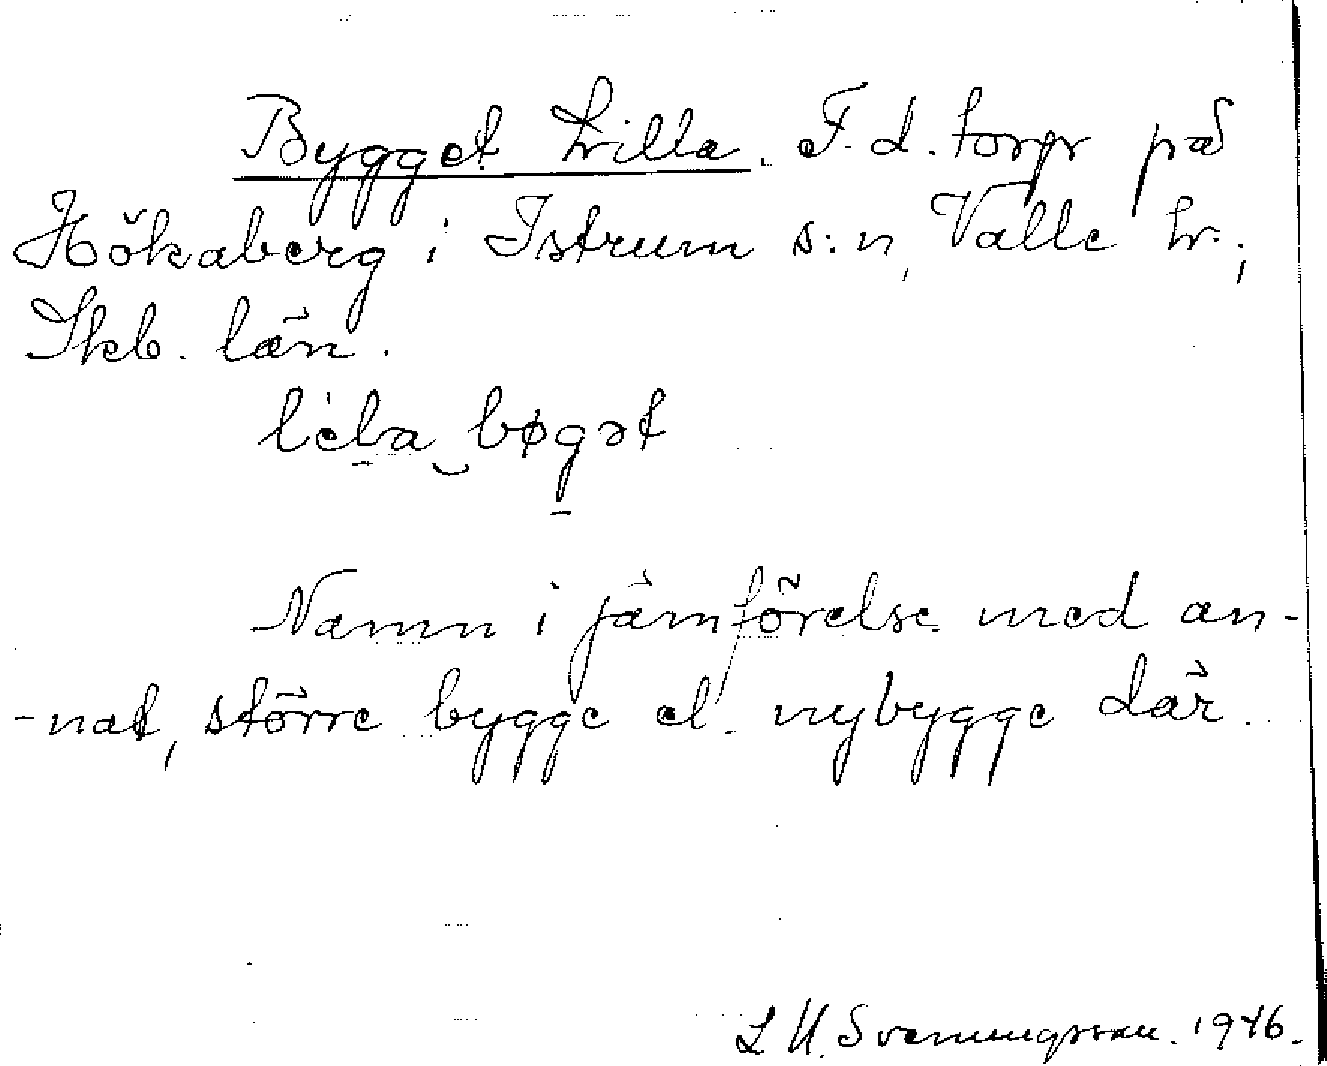 Bygget Lilla. F.d. torp på
Hökaberg i Istrum s:n, Valle hr.,
Skb. län.
lìla bøgət
Namn i jämförelse med an-
-nat, större bygge el. nybygge där.
L H. Svenungsson. 1946.